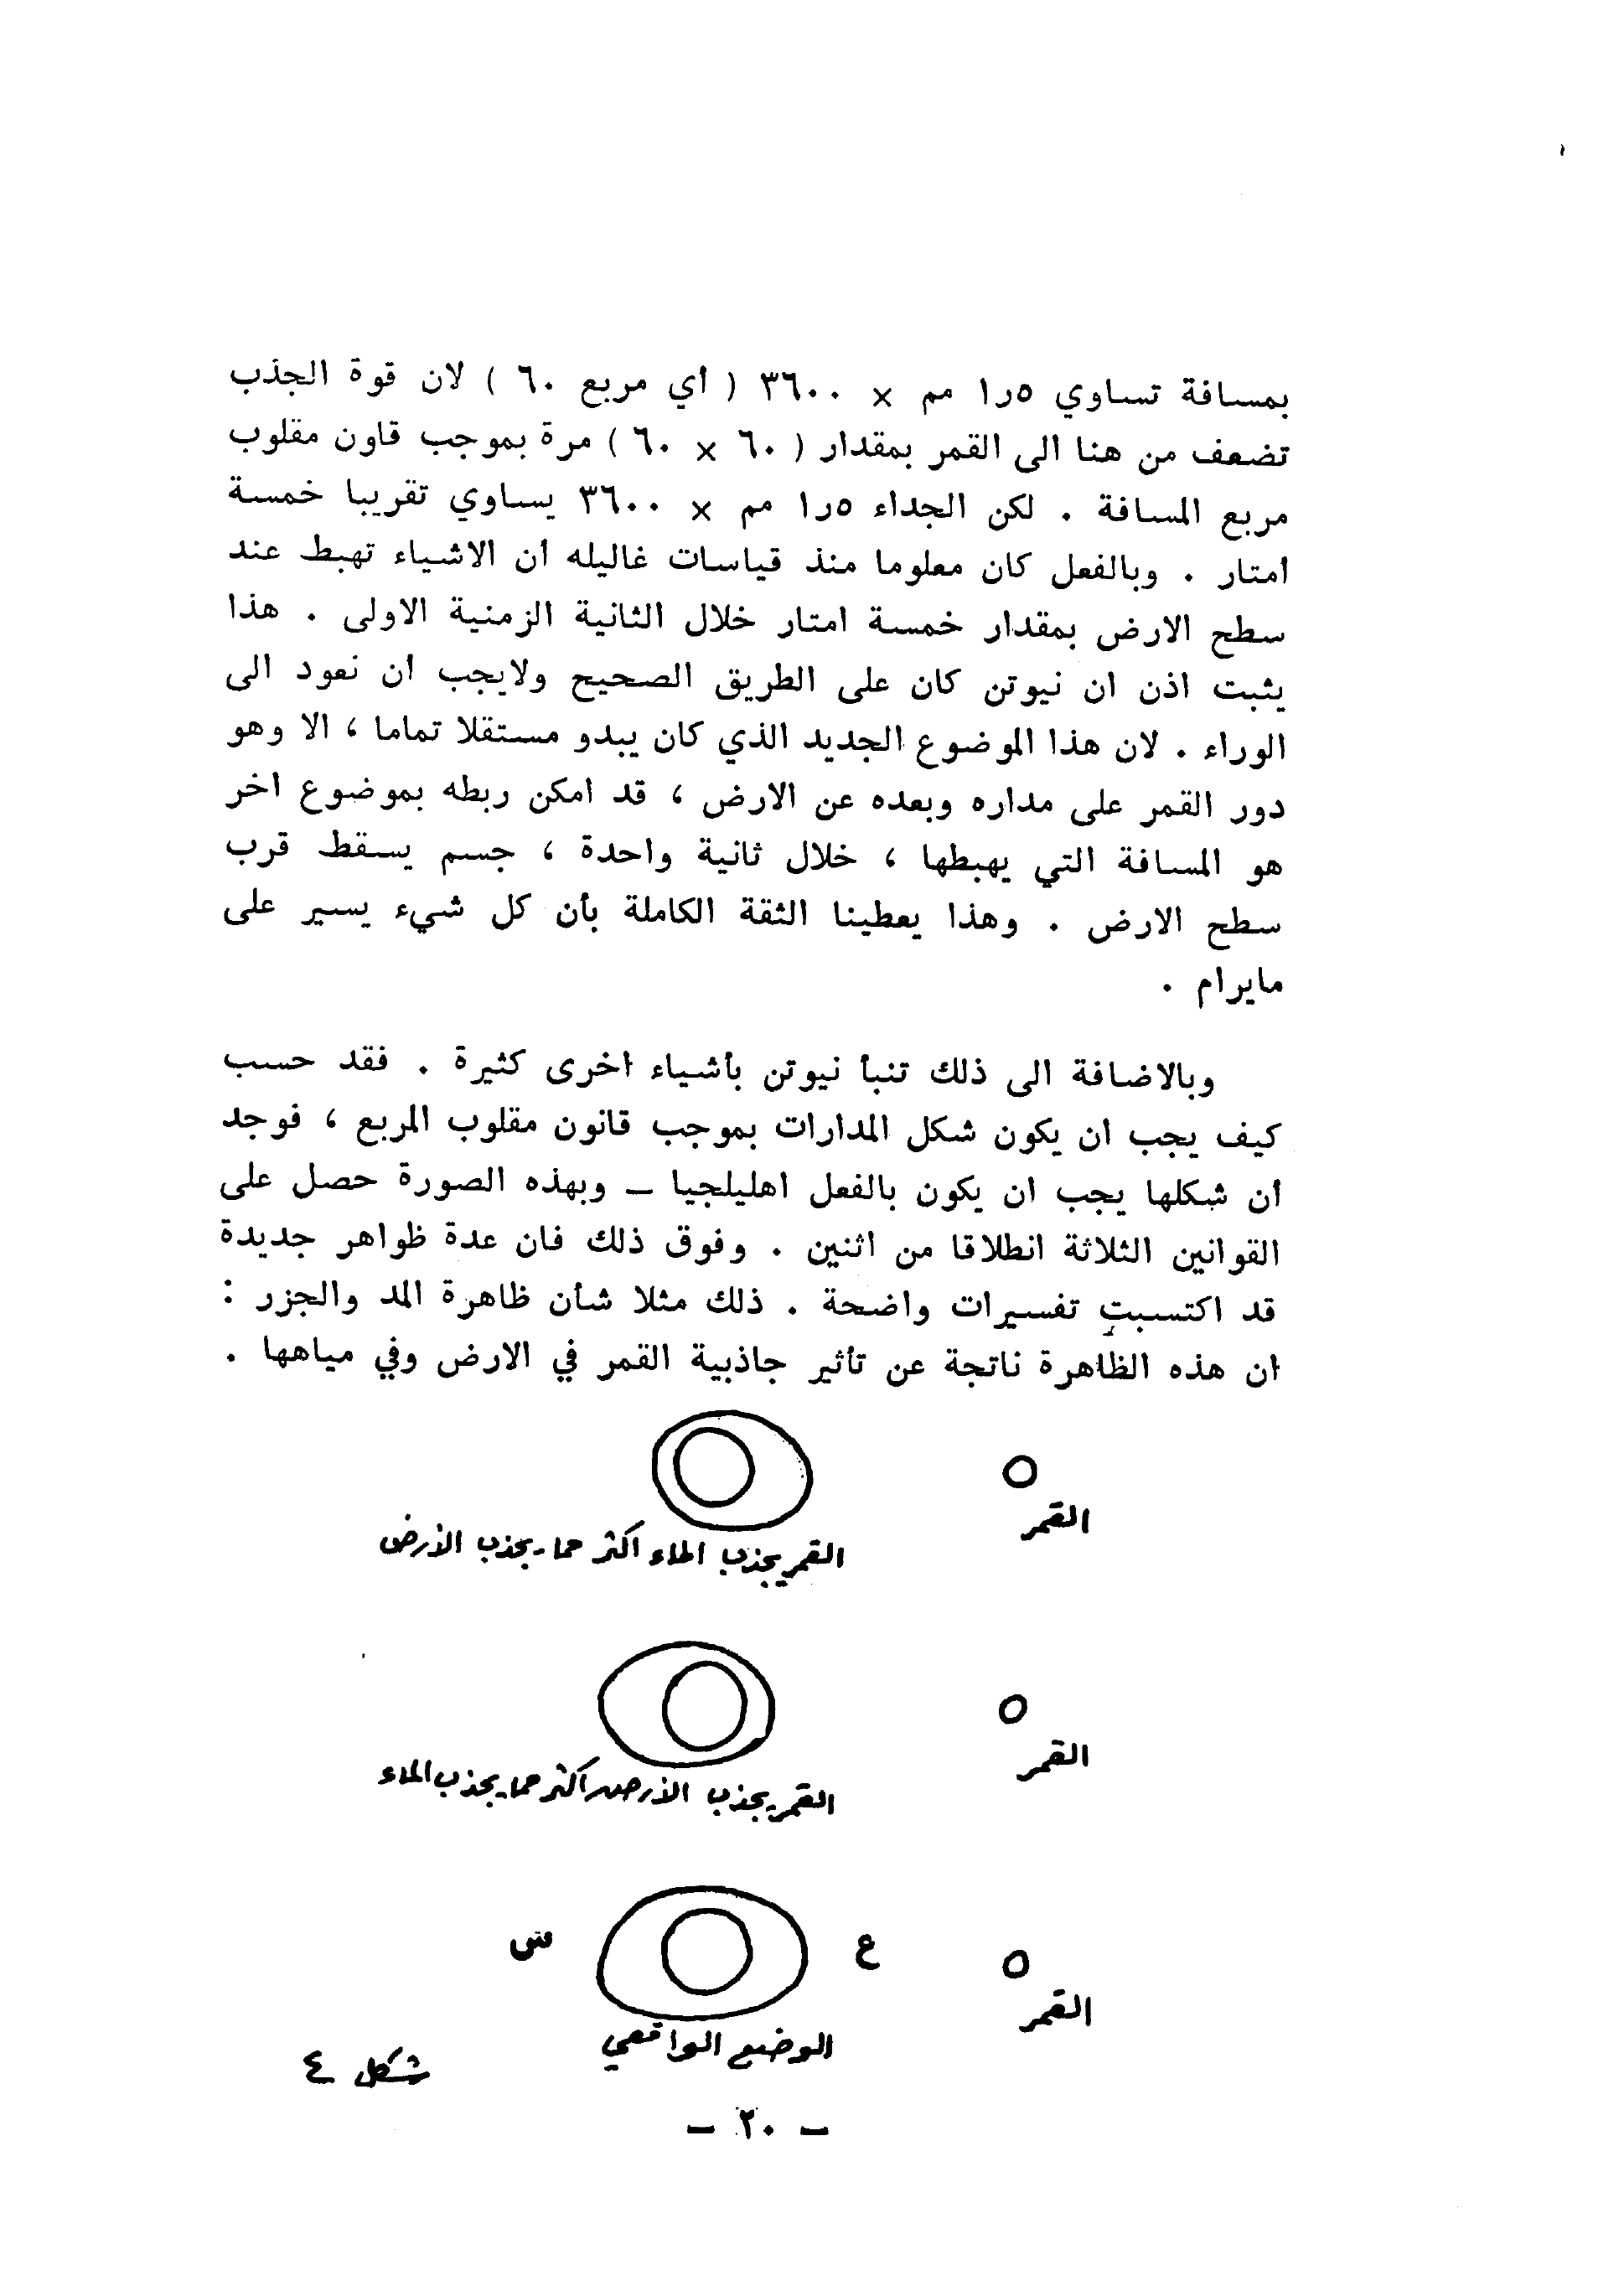 بمسافة تساوي ٥ر١ مم × ٣٦٠٠ ( أي مربع ٦٠ ) لان قوة الجذب
تضعف من هنا الى القمر بمقدار ( ٦٠ × ٦٠ ) مرة بموجب قاون مقلوب
مربع المسافة . لكن الجداء ٥ر١ مم × ٣٦٠٠ يساوي تقريبا خمسة
امتار . وبالفعل كان معلوما منذ قياسات غاليله أن الاشياء تهبط عند
سطح الارض بمقدار خمسة امتار خلال الثانية الزمنية الاولى . هذا
يثبت اذن ان نيوتن كان على الطريق الصحيح ولايجب أن نعود الى
الوراء . لان هذا الموضوع الجديد الذي كان يبدو مستقلا تماما ، الا وهو
دور القمر على مداره وبعده عن الارض ، قد امكن ربطه بموضوع اخر
هو المسافة التي يهبطها ، خلال ثانية واحدة ، جسم يسقط قرب
سطح الارض . وهذا يعطينا الثقة الكاملة بأن كل شيء يسير على
مايرام .
وبالاضافة الى ذلك تنبأ نيوتن بأشياء اخرى كثيرة . فقد حسب
كيف يجب ان يكون شكل المدارات بموجب قانون مقلوب المربع ، فوجد
أن شكلها يجب ان يكون بالفعل اهليلجيا – وبهذه الصورة حصل على
القوانين الثلاثة انطلاقا من اثنين . وفوق ذلك فان عدة ظواهر جديدة
قد اكتسبت تفسيرات واضحة . ذلك مثلا شأن ظاهرة المد والجزر :
ان هذه الظاهرة ناتجة عن تأثير جاذبية القمر في الارض وفي مياهها .
القمر
القمر يجذب الماء اكثر مما يجذب الأرض
القمر
القمر يجذب الأرض أكثر مما يجذب الماء
ع
س
القمر
الوضع الواقعي
شكل ٤
– ٢٠ –